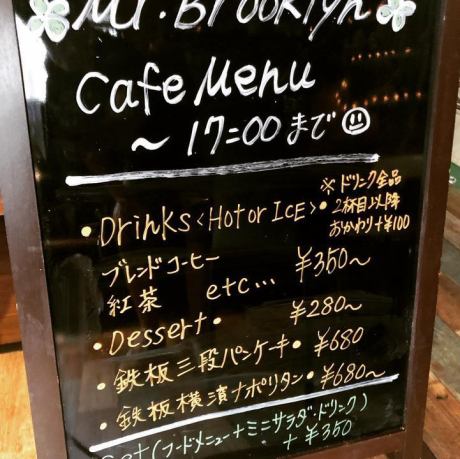 Mr. Brooklyn
Cafe Menu
～17:00まで
・Drinks<Hot or ICE>・
※ドリンク全品
2杯目以降
おかわり+¥100
ブレンドコーヒー
紅茶 etc... ¥350～
・Dessert・ ¥280～
・鉄板三段パンケーキ・¥680
・鉄板横濱ナポリタン・¥680～
Set(フードメニュー+ミニサラダ・ドリンク)
+¥350